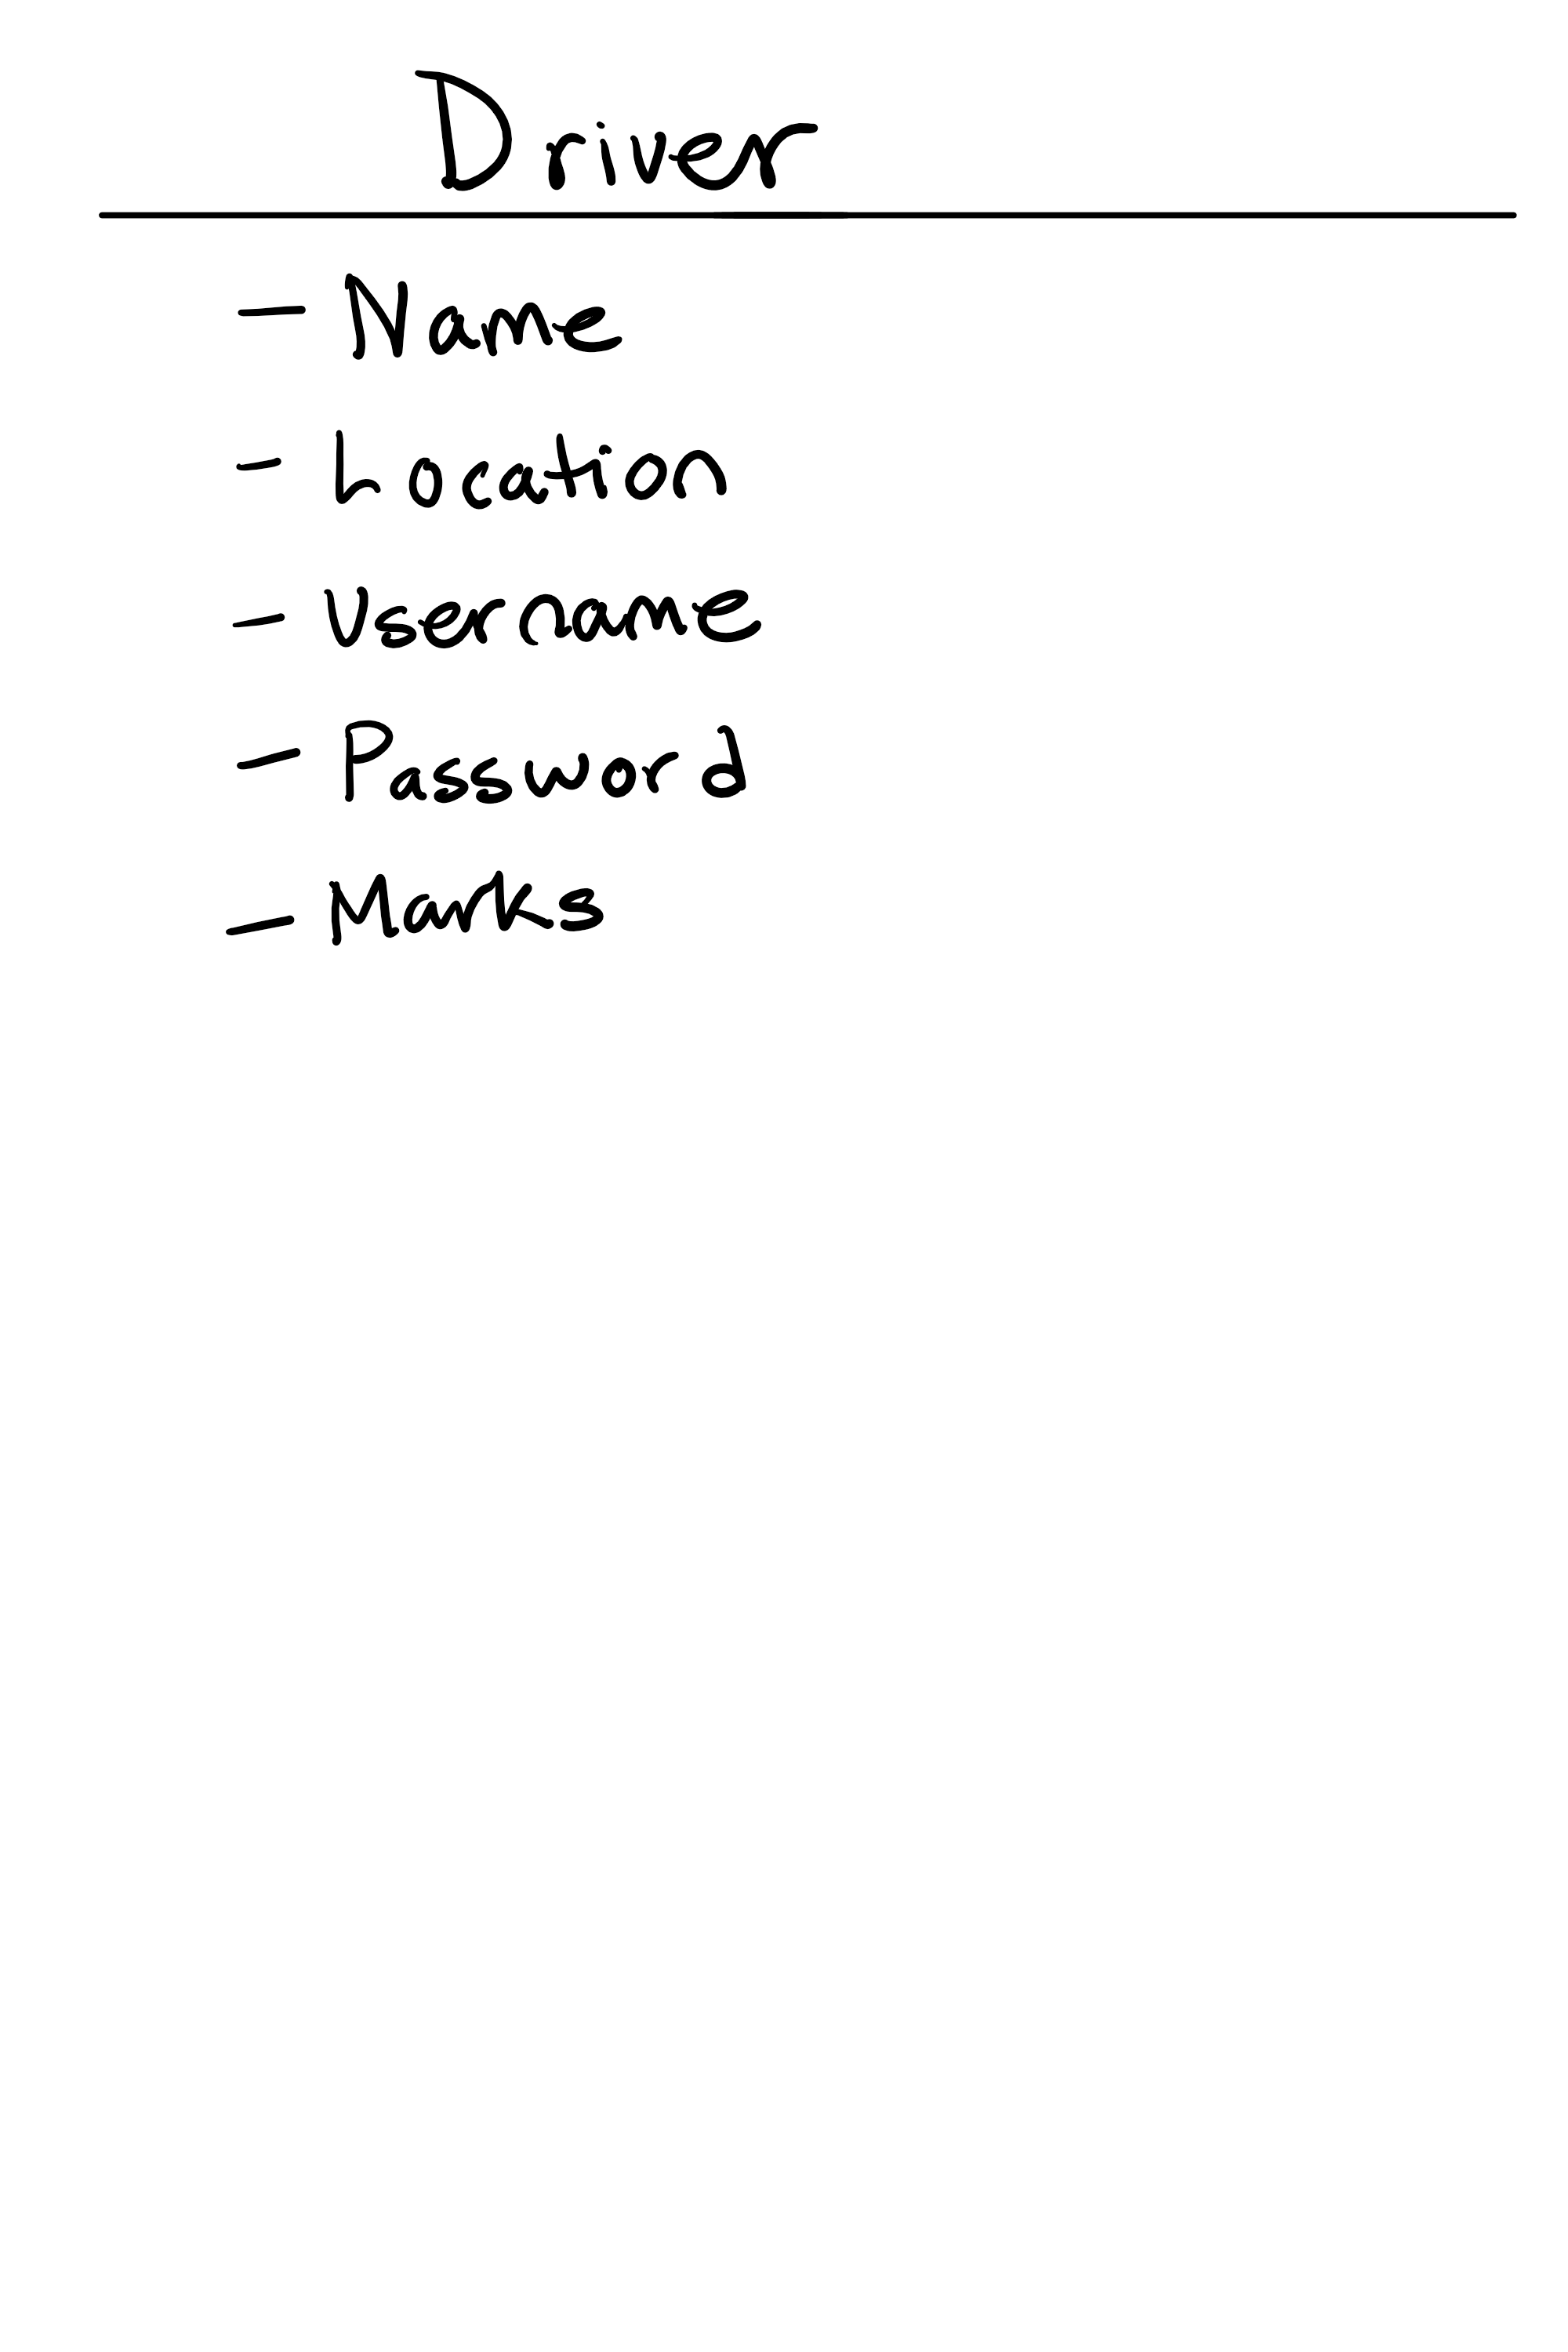 Driver
- Name
- Location
- Username
- Password
- Marks